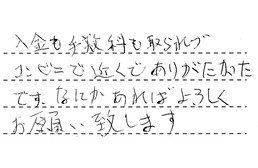 入金も手数料も取られづ
コンビニで近くでありがたかった
です。なにかあればよろしく
お願い致します